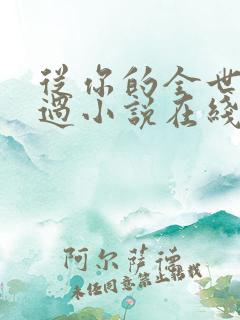 从你的全世
过小说在线
阿尔萨德
未经同意禁止转载